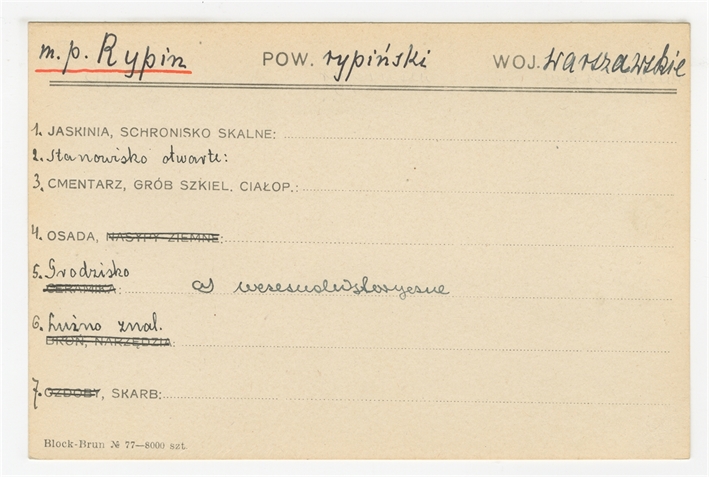 m.p. Rypin POW. rypiński WOJ. warszawskie
1. JASKINIA, SCHRONISKO SKALNE:
2. Stanowisko otwarte:
3. CMENTARZ, GRÓB SZKIEL. CIAŁOP.:
4. OSADA, NASYPY ZIEMNE:
5. Grodzisko
CERAMIKA: a) wczesnohistoryczne
6. Luźno znal.
BROŃ, NARZĘDZIA:
7. OZDOBY, SKARB:
Block-Brun № 77—8000 szt.